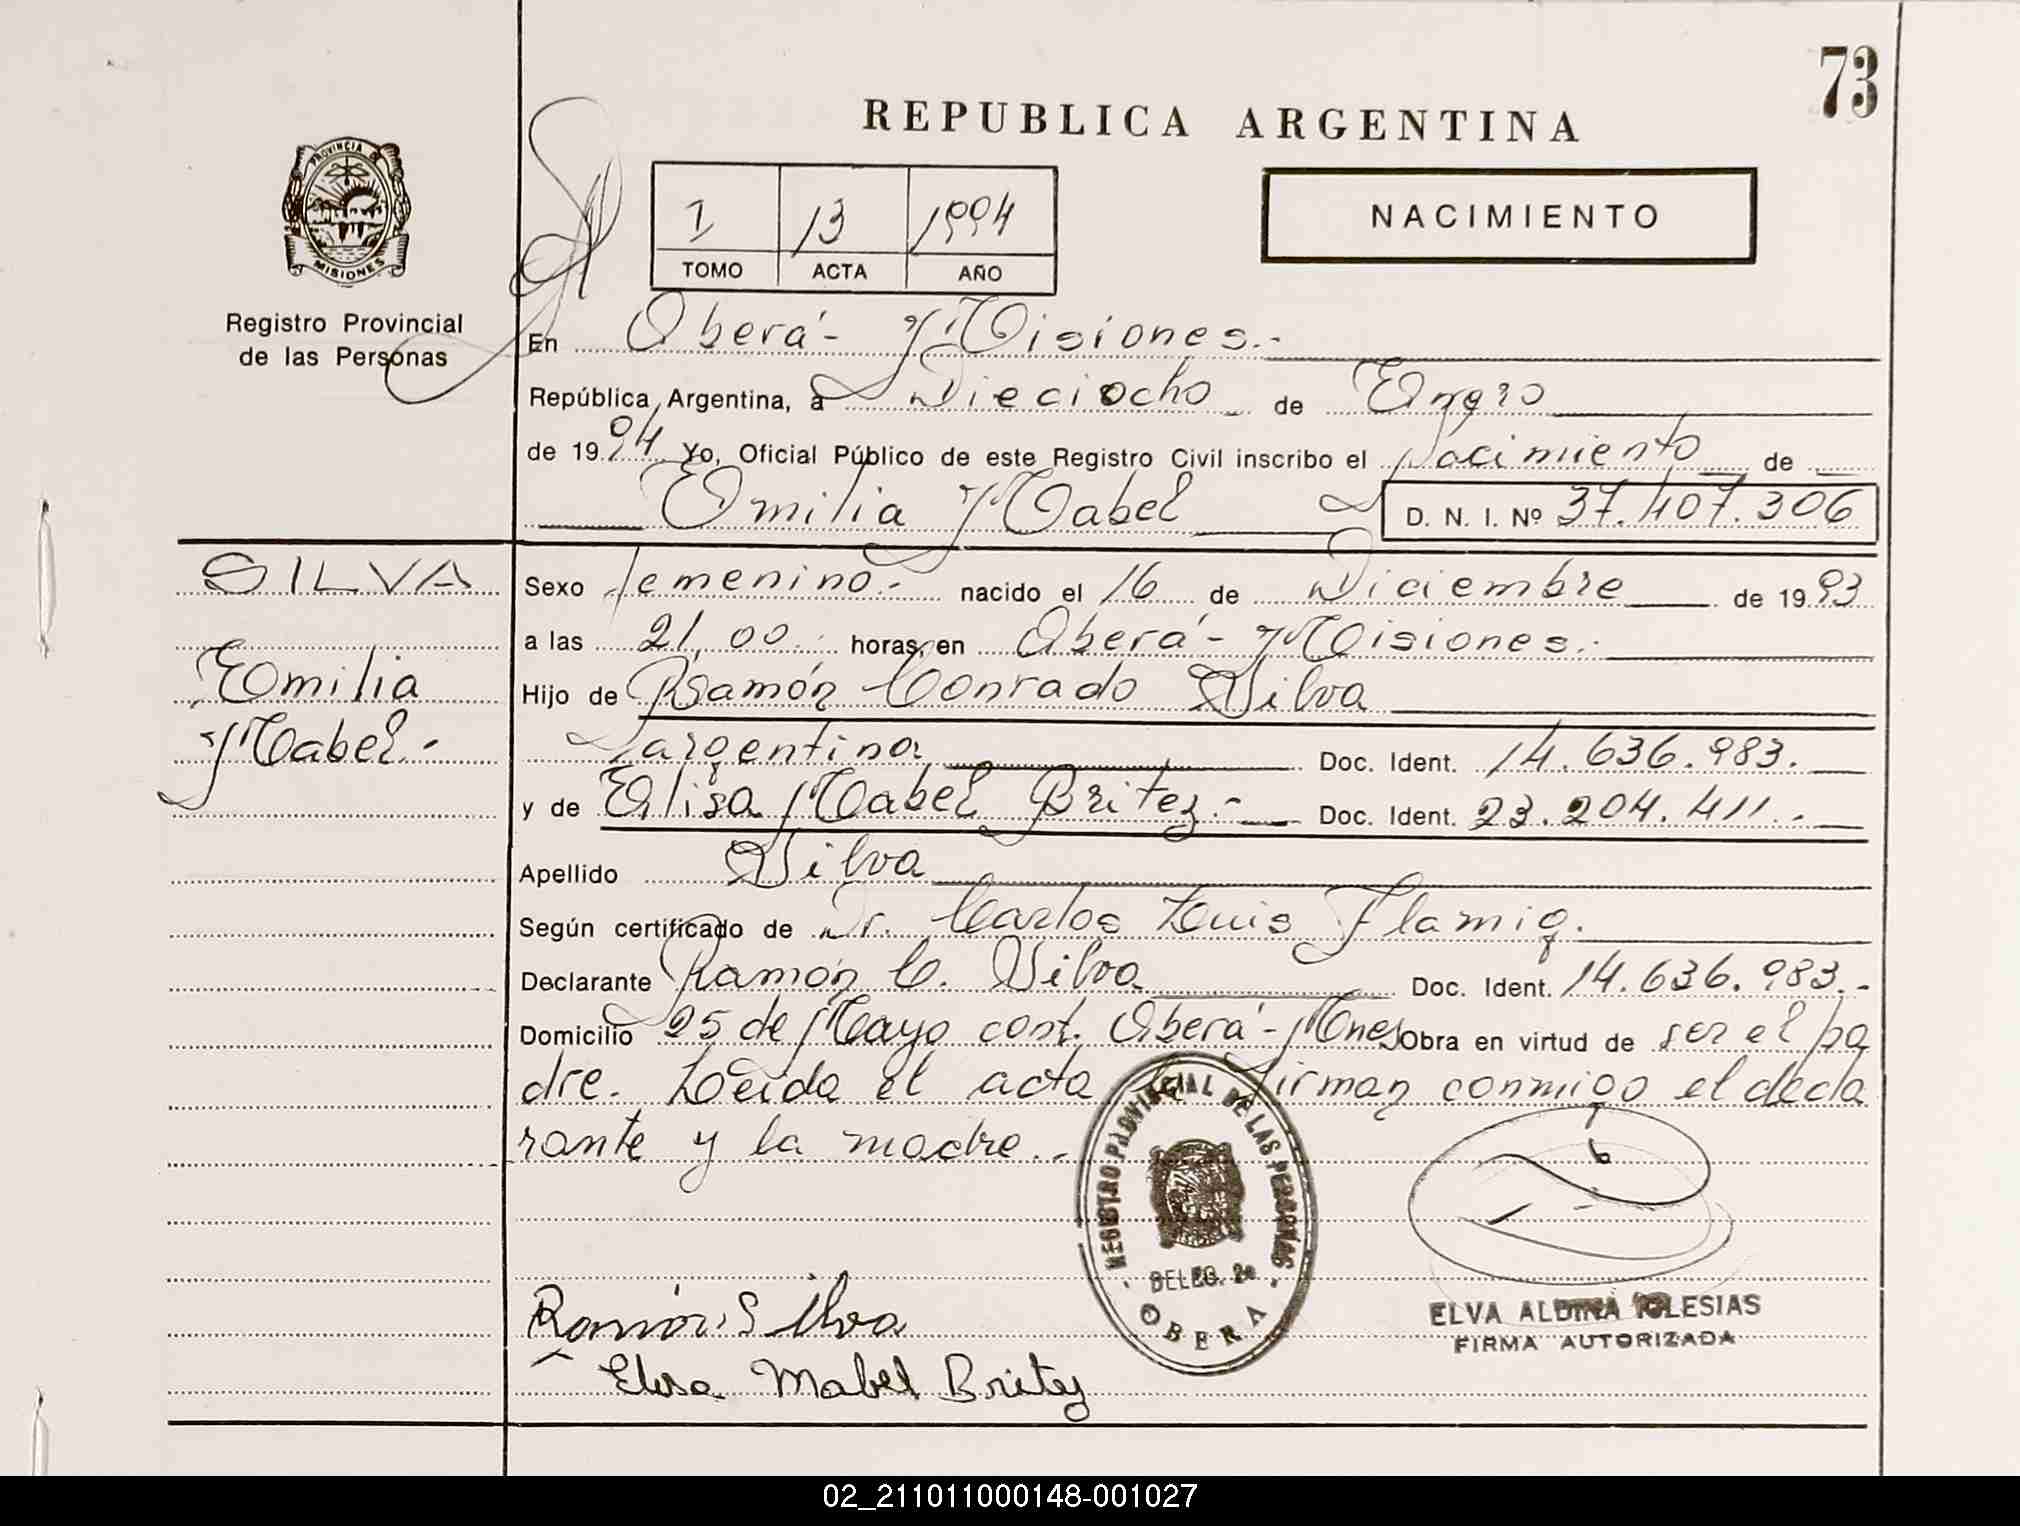 73
REPUBLICA ARGENTINA
PROVINCIA DE
MISIONES
Registro Provincial
de las Personas
I 13 1994
TOMO ACTA AÑO
NACIMIENTO
En Oberá - Misiones.-
República Argentina, a Dieciocho de Enero
de 1994 Yo, Oficial Público de este Registro Civil inscribo el Nacimiento de
Emilia Mabel D. N. I. Nº 37.407.306
SILVA
Emilia
Mabel.-
Sexo femenino.- nacido el 16 de Diciembre de 1993
a las 21,00 horas, en Oberá - Misiones.-
Hijo de Ramón Conrado Silva
argentina Doc. Ident. 14.636.983.
y de Elisa Mabel Britez.- Doc. Ident. 23.204.411.-
Apellido Silva
Según certificado de Dr. Carlos Luis Flamig.
Declarante Ramón C. Silva Doc. Ident. 14.636.983.-
Domicilio 25 de Mayo cont. Oberá - Mnes Obra en virtud de ser el pa
dre. Leída el acta la firman conmigo el decla
rante y la madre.-
REGISTRO PROVINCIAL DE LAS PERSONAS
DELEG. 2a
OBERA
Ramón Silva
Elisa Mabel Britez
ELVA ALBINA IGLESIAS
FIRMA AUTORIZADA
02_211011000148-001027